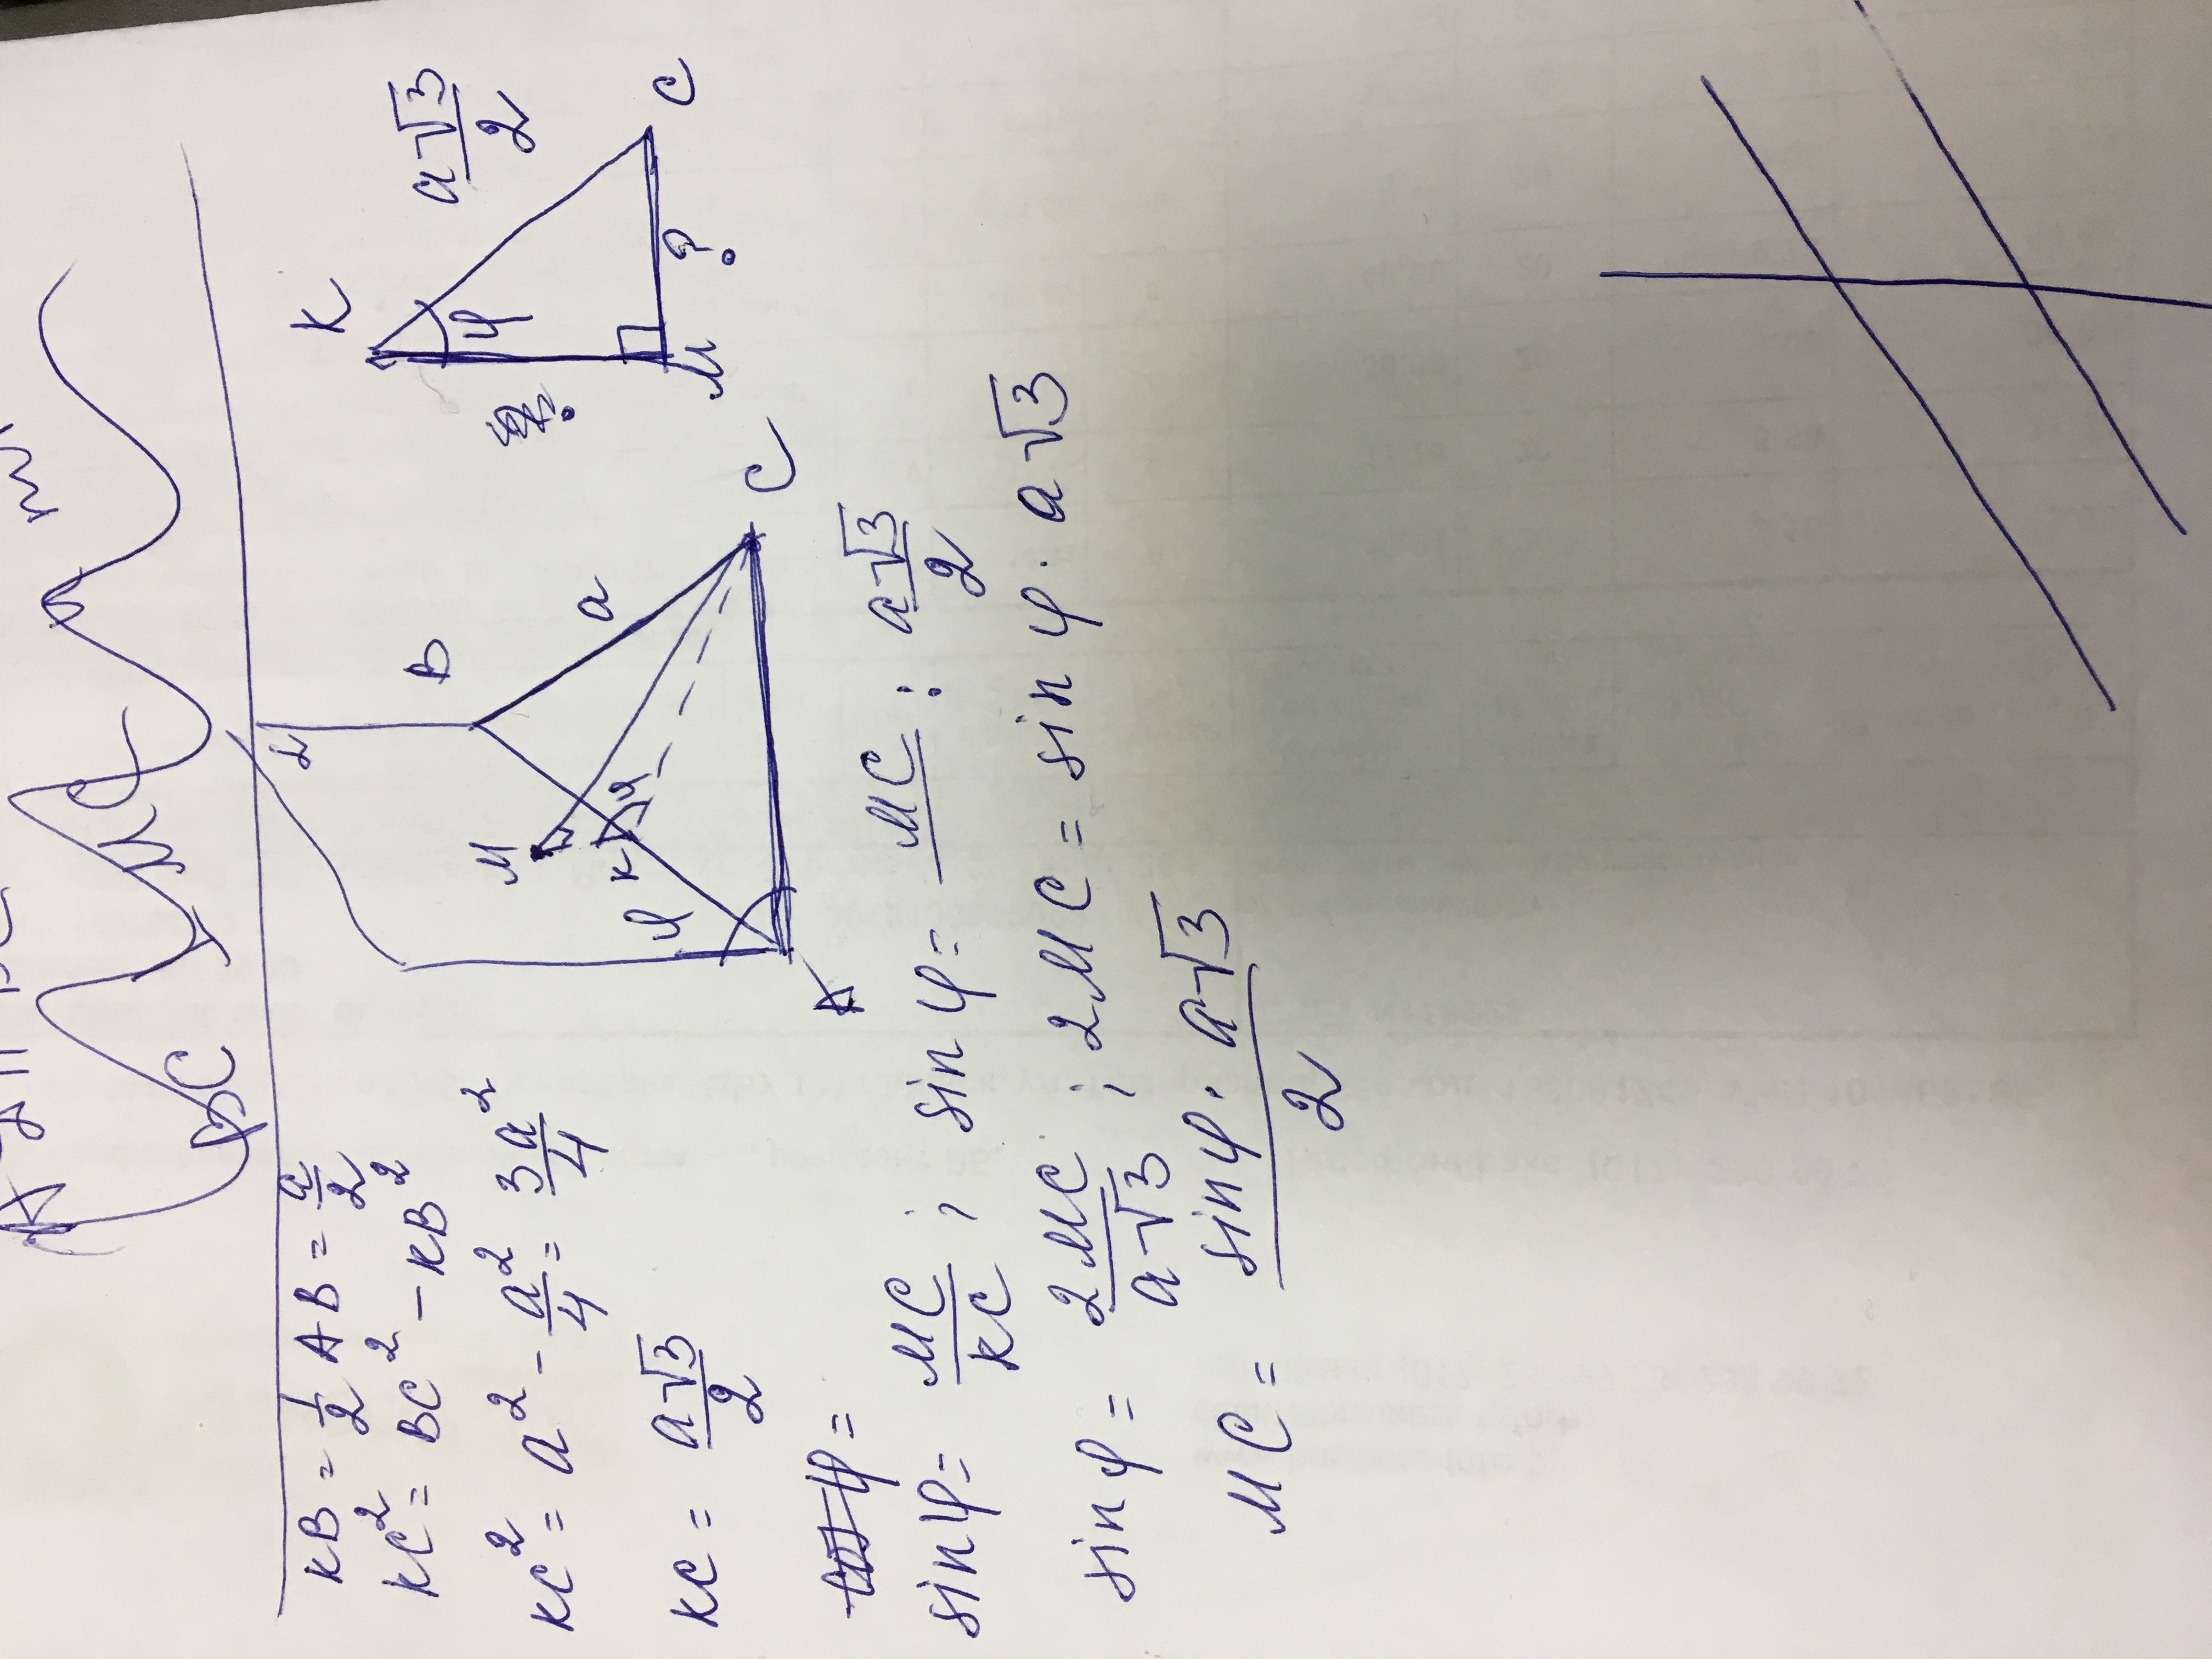 BC
KB = 1/2 AB = a/2
KC² = BC² - KB²
KC² = a² - a²/4 = 3a²/4
KC = a√3/2
φ =
sin φ = MC/KC ; sin φ = MC/ : a√3/2
sin φ = 2MC/a√3 ; 2MC = sin φ · a√3
MC = sin φ · a√3/2
B
a
M
K
φ
φ
A
C
K
φ
a√3/2
?
M
C